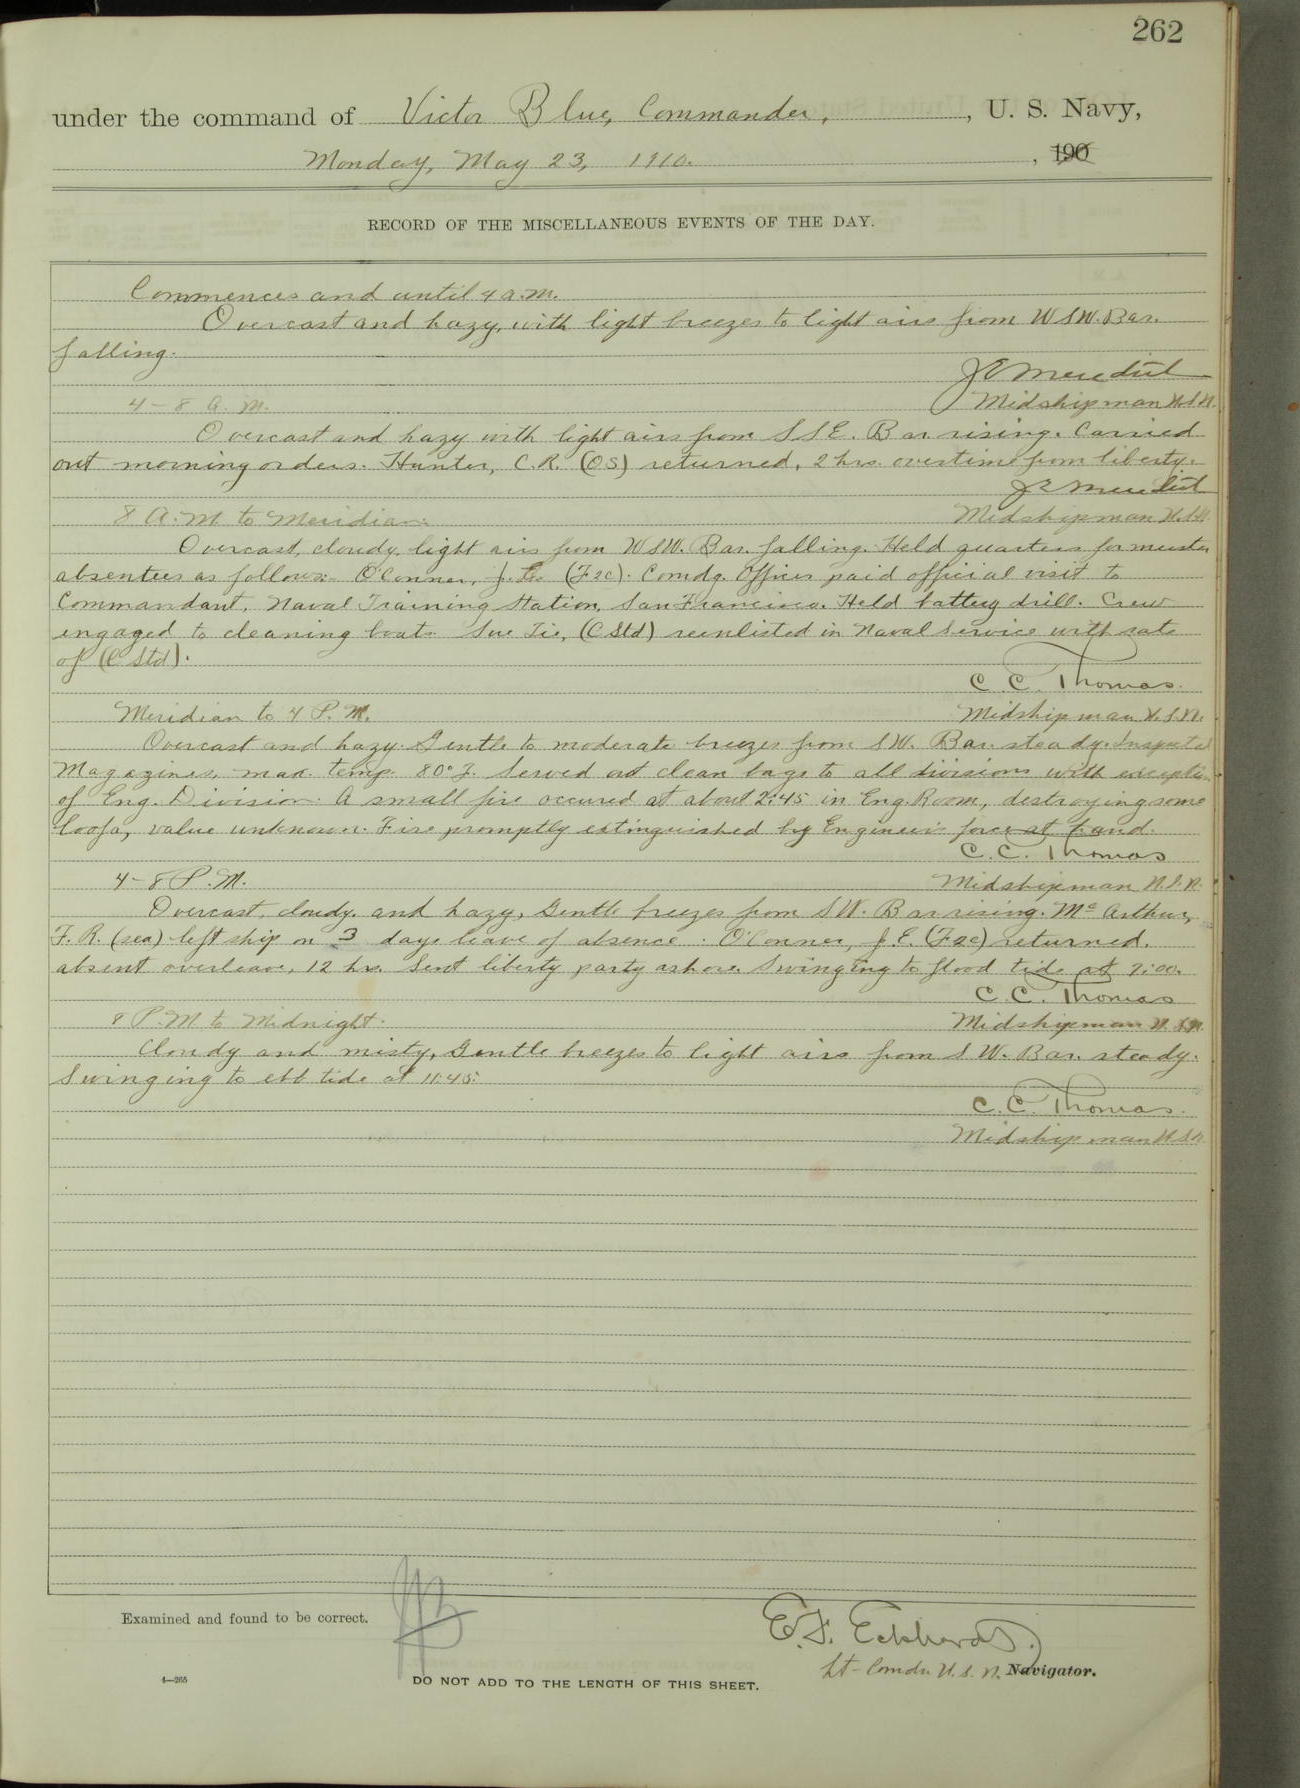 262
under the command of Victor Blue, Commander, , U. S. Navy,
Monday, May 23, 1910. , 190
RECORD OF THE MISCELLANEOUS EVENTS OF THE DAY.
Commences and until 4 a.m.
Overcast and hazy, with light breezes to light airs from WSW. Bar.
falling.
J E Meredith
4-8 A. M. Midshipman U.S.N.
Overcast and hazy with light airs from SSE. Bar rising. Carried
out morning orders. Hunter, C.R. (OS) returned, 2 hrs. overtime from liberty.
J E Meredith
8 A.M. to Meridian. Midshipman U.S.N.
Overcast, cloudy, light airs from WSW. Bar. falling. Held quarters for muster
absentees as follows: O'Conner, J. E. (F2c). Comdg. Officer paid official visit to
Commandant, Naval Training Station, San Francisco. Held battery drill. Crew
engaged to cleaning boat. Sue Tie, (C Std) reenlisted in Naval Service with rate
of (C Std).
C. C. Thomas.
Meridian to 4 P. M. Midshipman U.S.N.
Overcast and hazy. Gentle to moderate breezes from SW. Bar. steady. Inspected
Magazines, max. temp. 80° F. Served out clean bags to all divisions with exception
of Eng. Division. A small fire occured at about 2:45 in Eng. Room, destroying some
loofa, value unknown. Fire promptly extinguished by Engineers force at hand.
C. C. Thomas
4-8 P. M. Midshipman U.S.N.
Overcast, cloudy, and hazy, Gentle breezes from SW. Bar rising. Mc Arthur,
F. R. (sea) left ship on 3 days leave of absence. O'Conner, J. E. (F2c) returned,
absent overleave, 12 hrs. Sent liberty party ashore. Swinging to flood tide at 7:00.
C. C. Thomas
8 P.M. to Midnight. Midshipman U.S.N.
Cloudy and misty, Gentle breezes to light airs from SW. Bar. steady.
Swinging to ebb tide at 11:45.
C. C. Thomas.
Midshipman U.S.N.
Examined and found to be correct.
E. F. Eckhardt
Lt-Comdr. U. S. N. Navigator.
4—265
DO NOT ADD TO THE LENGTH OF THIS SHEET.